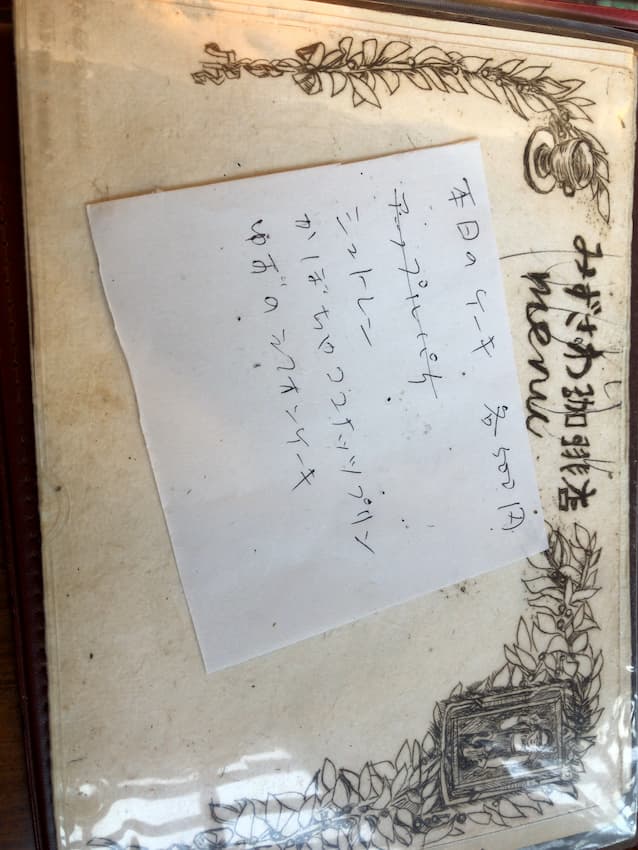 みずさわ珈琲店
menu
本日のケーキ 各500円
アップルパイ
シュトレン
かぼちゃのココナッツプリン
ゆずのシフォンケーキ